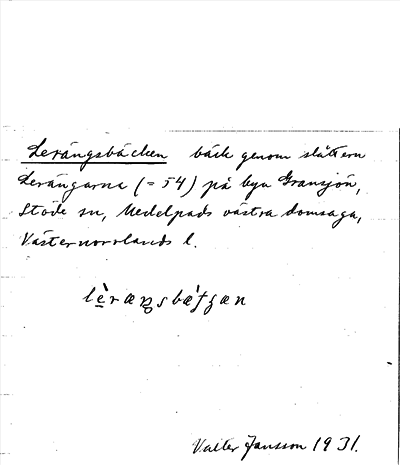 Lerängsbäcken bäck genom slåttern
Lerängarna (= 54) på byn Gransjön,
Stöde sn, Medelpads västra domsaga,
Västernorrlands l.
Valter Jansson 1931.